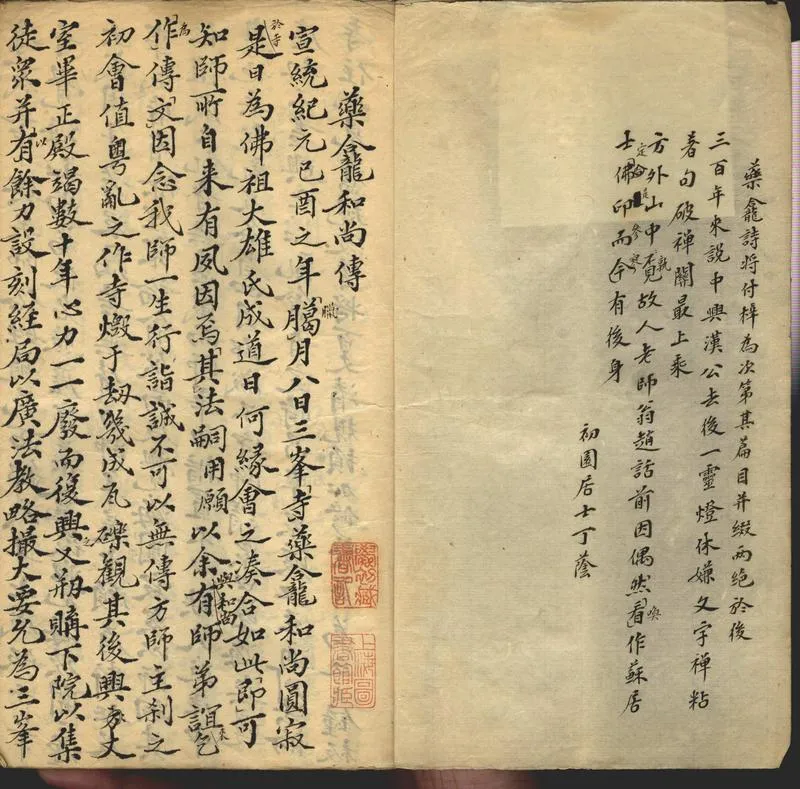 藥龕詩將付梓為次第其篇目并綴兩絕於後
三百年來說中興漢公去後一靈燈休嫌文字禪粘
著句破禪關最上乘
方外山中覓故人老師翁趙話前因偶然看作蘇居
士佛印而今有後身
初園居士丁蔭
藥龕和尚傳
宣統紀元己酉之年臈月八日三峯寺藥龕和尚圓寂
是日為佛祖大雄氏成道日何緣會之湊合如此即可
知師所自来有夙因焉其法嗣用願以余有師弟誼乞
作傳文因念我師一生行詣誠不可以無傳方師主刹之
初會值粵亂之作寺燬于劫幾成瓦礫觀其後興方丈
室畢正殿竭數十年心力一一廢而復興又剏購下院以集
徒眾并有餘力設刻經局以廣法教略撮大要允為三峯